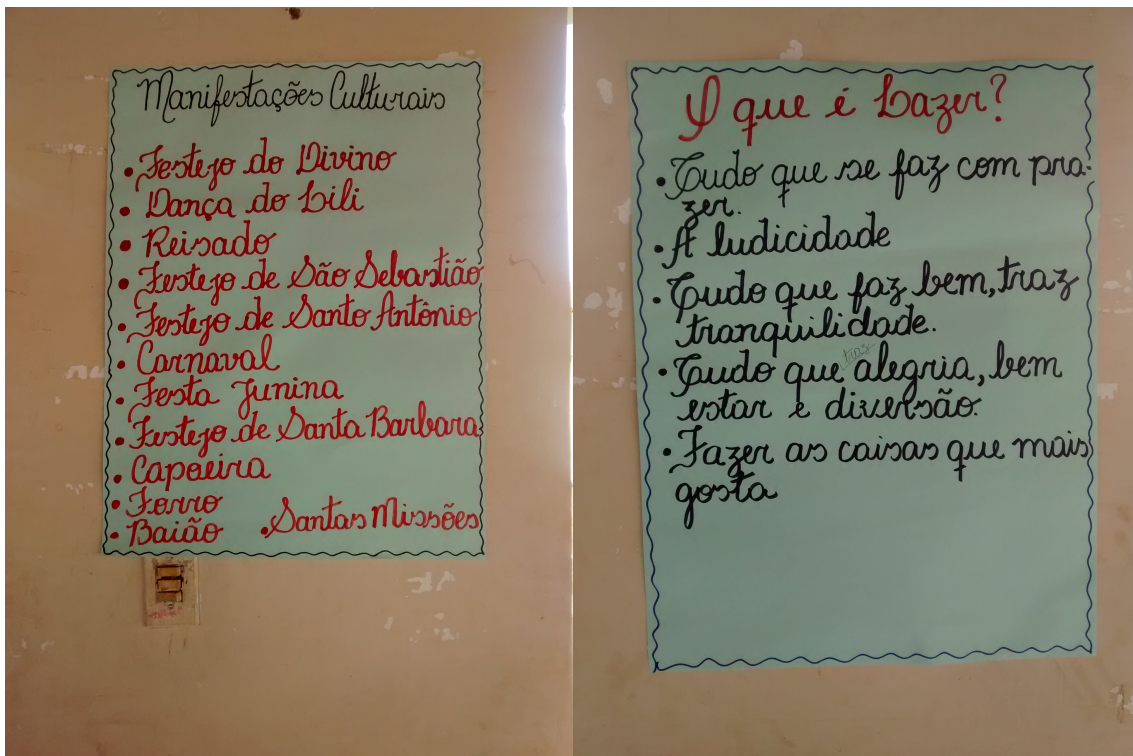 Manifestações Culturais
• Festejo do Divino
• Dança do Lili
• Reisado
• Festejo de São Sebastião
• Festejo de Santo Antônio
• Carnaval
• Festa Junina
• Festejo de Santa Barbara
• Capoeira
• Forro
• Baião • Santas Missões
O que é Lazer?
• Tudo que se faz com pra-
zer.
• A ludicidade
• Tudo que faz bem, traz
tranquilidade.
• Tudo que traz alegria, bem
estar e diversão.
• Fazer as caisas que mais
gosta